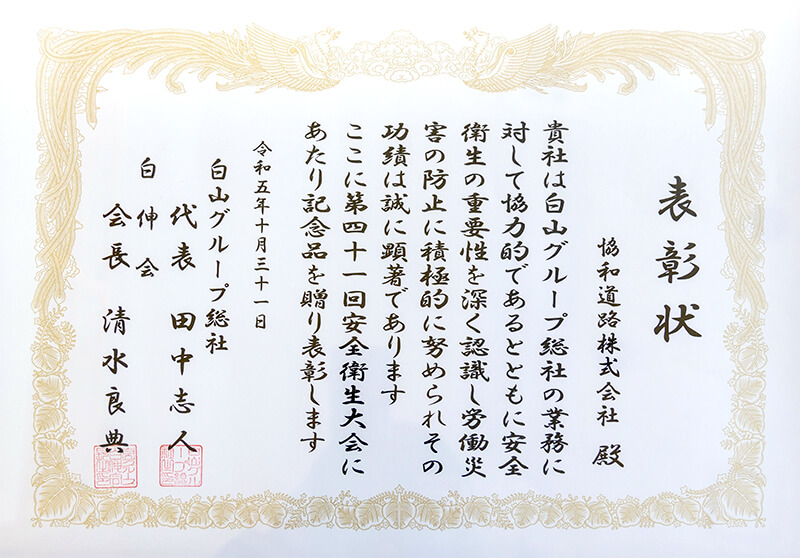 表彰状
協和道路株式会社 殿
貴社は白山グループ総社の業務に
対して協力的であるとともに安全
衛生の重要性を深く認識し労働災
害の防止に積極的に努められその
功績は誠に顕著であります
ここに第四十一回安全衛生大会に
あたり記念品を贈り表彰します
令和五年十月三十一日
白山グループ総社
代表 田中志人
白伸会
会長 清水良典